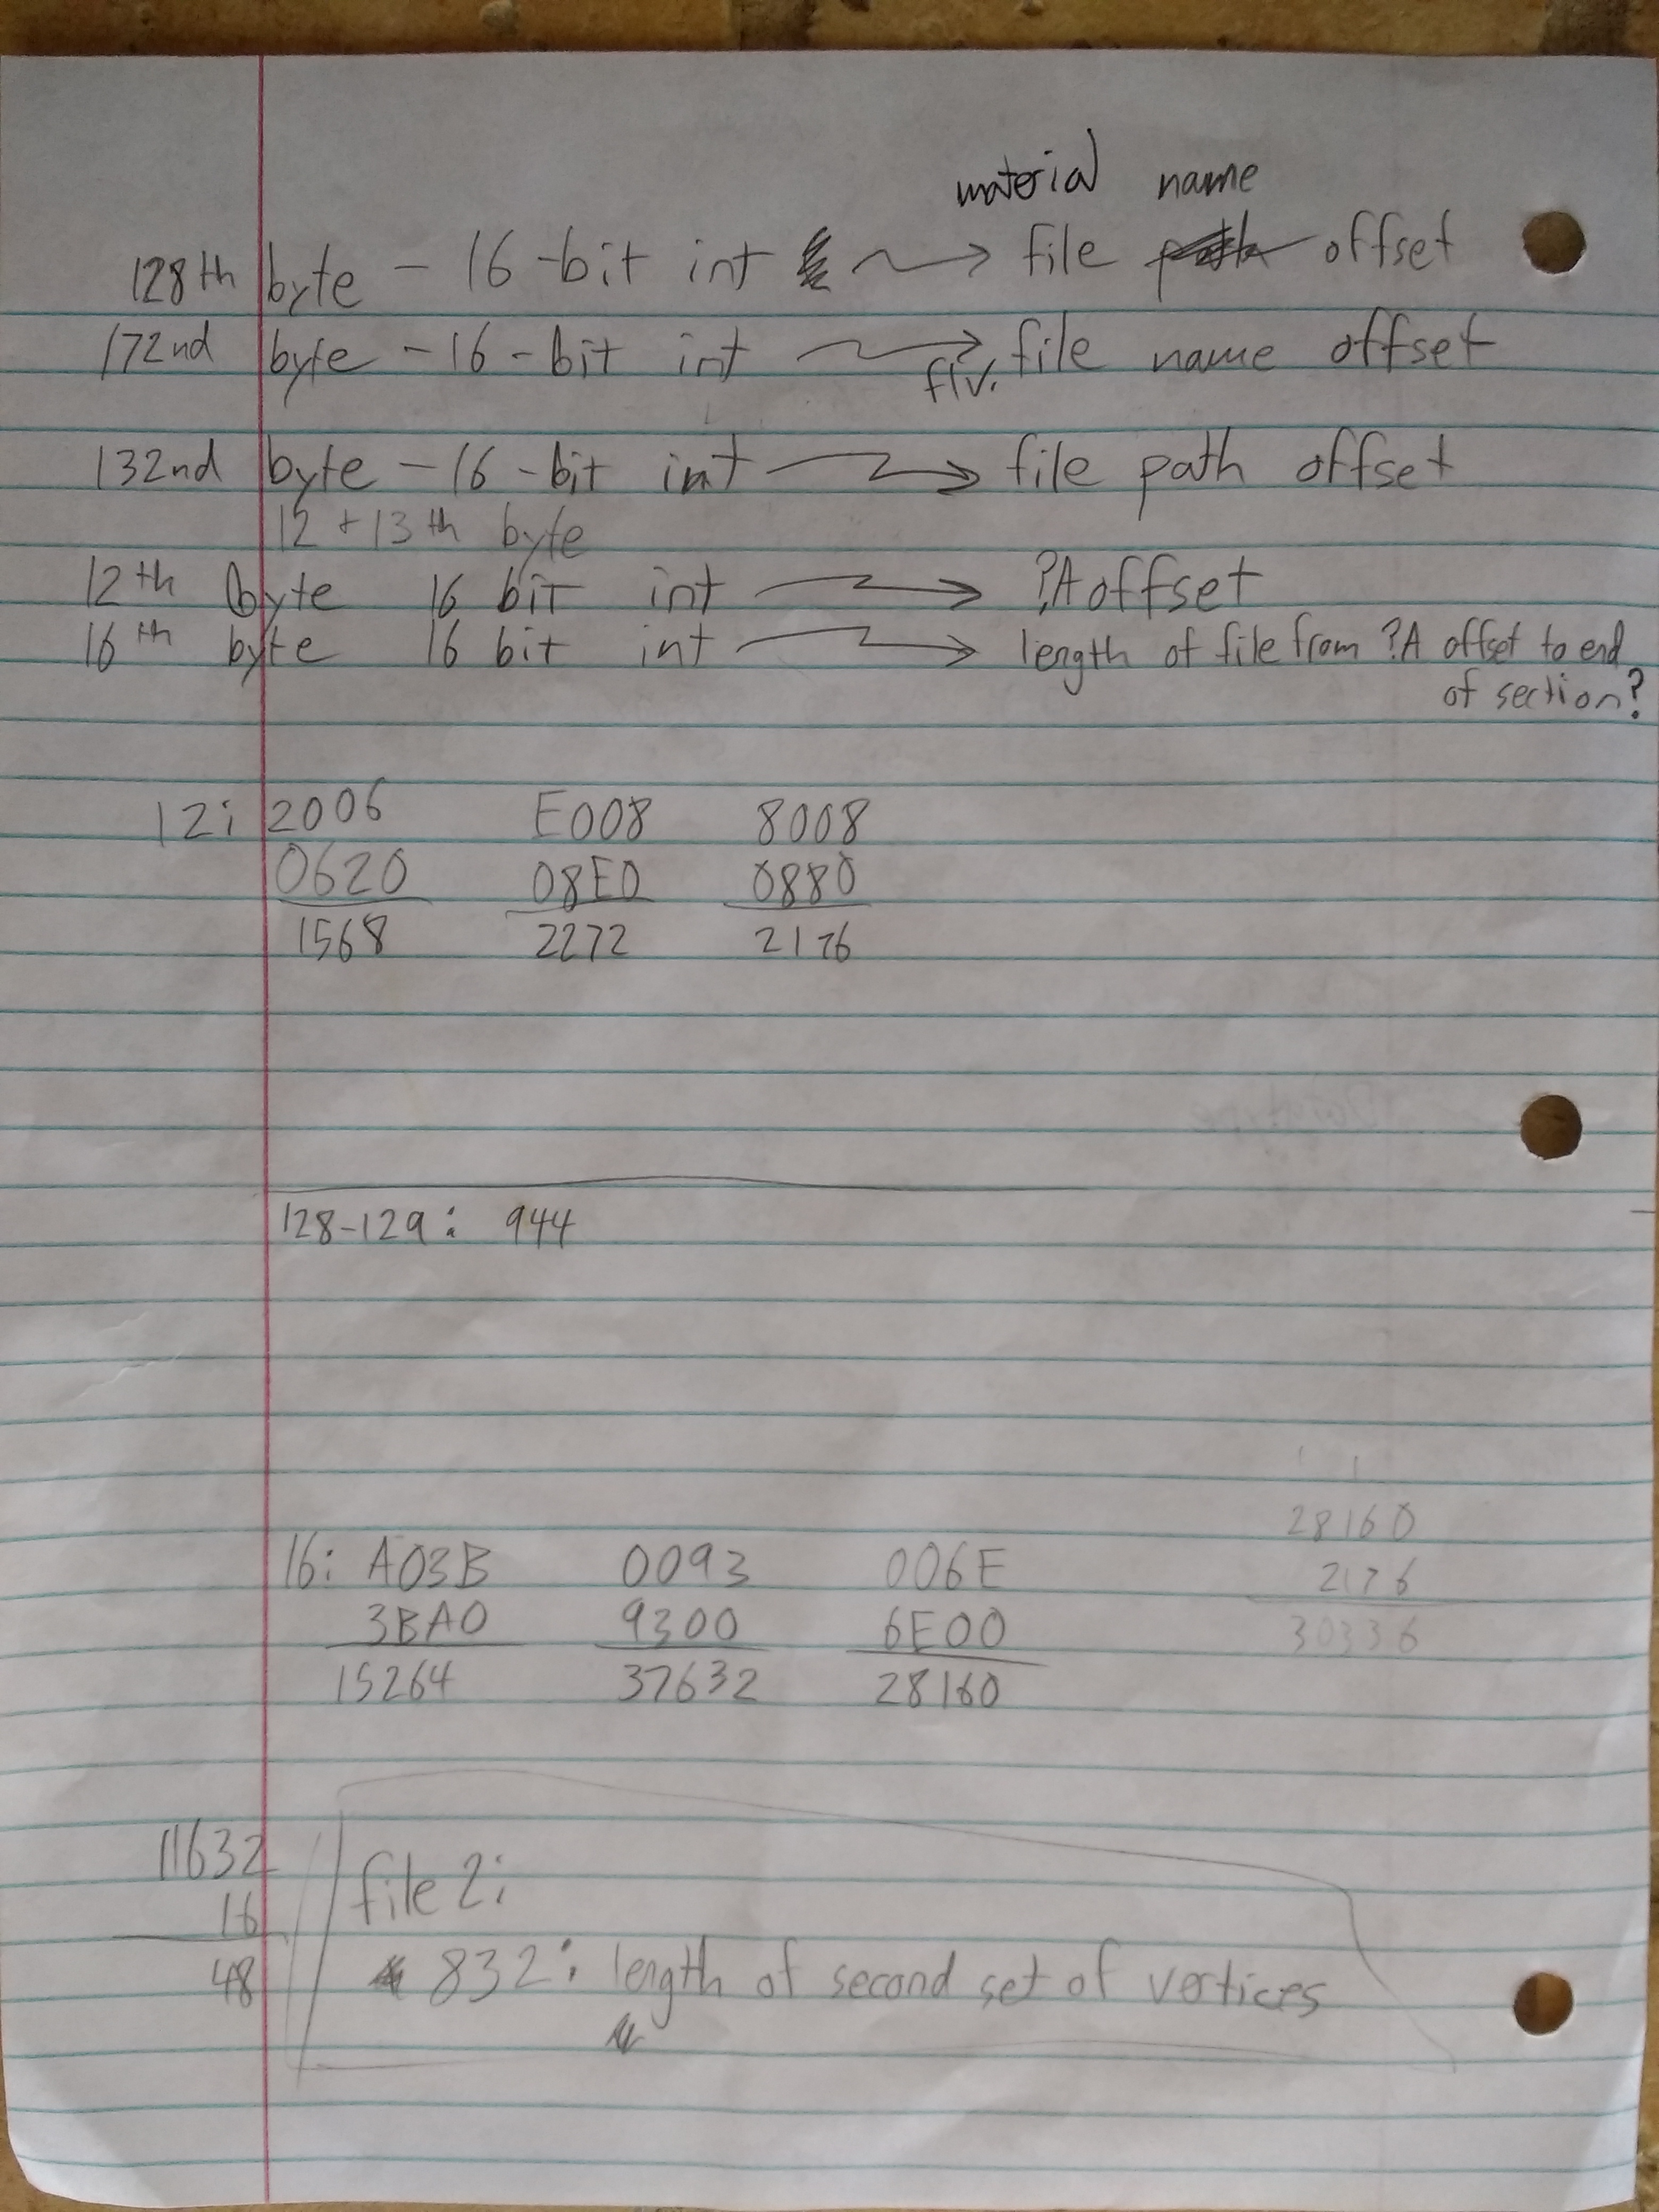 material name
128th byte - 16-bit int → file offset
172nd byte - 16-bit int → flv. file name offset
132nd byte - 16-bit int → file path offset
12 + 13th byte
12th byte 16 bit int → ?A offset
16th byte 16 bit int → length of file from ?A offset to end
of section?
12: 2006 E008 8008
0620 08E0 0880
1568 2272 2176
128-129: 944
28160
16: A03B 0093 006E 2176
3BA0 9300 6E00 30336
15264 37632 28160
11632
16 file 2:
48 832: length of second set of vertices